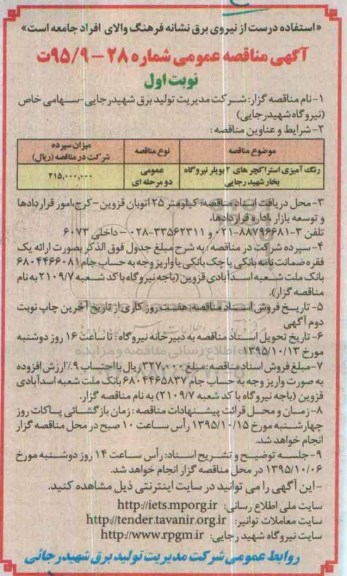 «استفاده درست از نیروی برق نشانه فرهنگ والای افراد جامعه است»
آگهی مناقصه عمومی شماره ۲۸-۹۵/۹ت
نوبت اول
۱-نام مناقصه گزار: شرکت مدیریت تولید برق شهیدرجایی-سهامی خاص
(نیروگاه شهیدرجایی)
۲-شرایط و عناوین مناقصه :
موضوع مناقصه نوع مناقصه میزان سپرده شرکت در مناقصه (ریال)
رنگ آمیزی استراکچر های ۲ بویلر نیروگاه بخار شهید رجایی عمومی دو مرحله ای ۲۱۵,۰۰۰,۰۰۰
۳-محل دریافت اسناد مناقصه: کیلومتر ۲۵ اتوبان قزوین-کرج،امور قراردادها
و توسعه بازار ،اداره قراردادها،
تلفن ۳-۸۸۷۹۶۶۸۱-۰۲۱ و ۳۳۵۶۲۳۱۱-۰۲۸ - داخلی ۶۰۷۳
۴-سپرده شرکت در مناقصه: به شرح مبلغ جدول فوق الذکر بصورت ارائه یک
فقره ضمانت نامه بانکی یا چک بانکی یا واریز وجه به حساب جام ۶۸۰۴۴۶۶۰۸۱
بانک ملت شعبه اسدآبادی قزوین (باجه نیروگاه با کد شعبه ۲۱۰۹/۷ به نام
مناقصه گزار).
۵- تاریخ فروش اسناد مناقصه: هفت روز کاری از تاریخ آخرین چاپ نوبت
دوم آگهی
۶-تاریخ تحویل اسناد مناقصه به دبیرخانه نیروگاه : تا ساعت ۱۶ روز دوشنبه
مورخ ۱۳۹۵/۱۰/۱۳
۷-مبلغ فروش اسناد مناقصه: مبلغ ۳۲۷,۰۰۰ ریال با احتساب ۹٪ ارزش افزوده
به صورت واریز وجه به حساب جام ۶۸۰۴۴۶۵۸۳۷ بانک ملت شعبه اسدآبادی
قزوین (باجه نیروگاه با کد شعبه ۲۱۰۹/۷) به نام مناقصه گزار.
۸-زمان و محل قرائت پیشنهادات مناقصه : زمان بازگشائی پاکات روز
چهارشنبه مورخ ۱۳۹۵/۱۰/۱۵ رأس ساعت ۱۰ صبح در محل مناقصه گزار
انجام خواهد شد.
۹-جلسه توضیح و تشریح اسناد: رأس ساعت ۱۴ روز دوشنبه مورخ
۱۳۹۵/۱۰/۰۶ در محل مناقصه گزار انجام خواهد شد.
-این آگهی را می توانید در سایت اینترنتی ذیل مشاهده کنید.
سایت ملی اطلاع رسانی: http://iets.mporg.ir
سایت معاملات توانیر: http://tender.tavanir.org.ir
سایت نیروگاه شهید رجایی: http://www.rpgm.ir
روابط عمومی شرکت مدیریت تولید برق شهیدرجائی